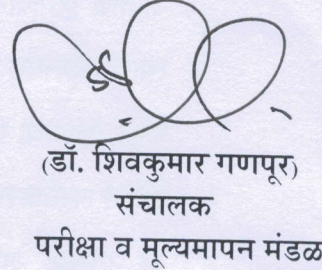 (डॉ. शिवकुमार गणपूर)
संचालक
परीक्षा व मूल्यमापन मंडळ